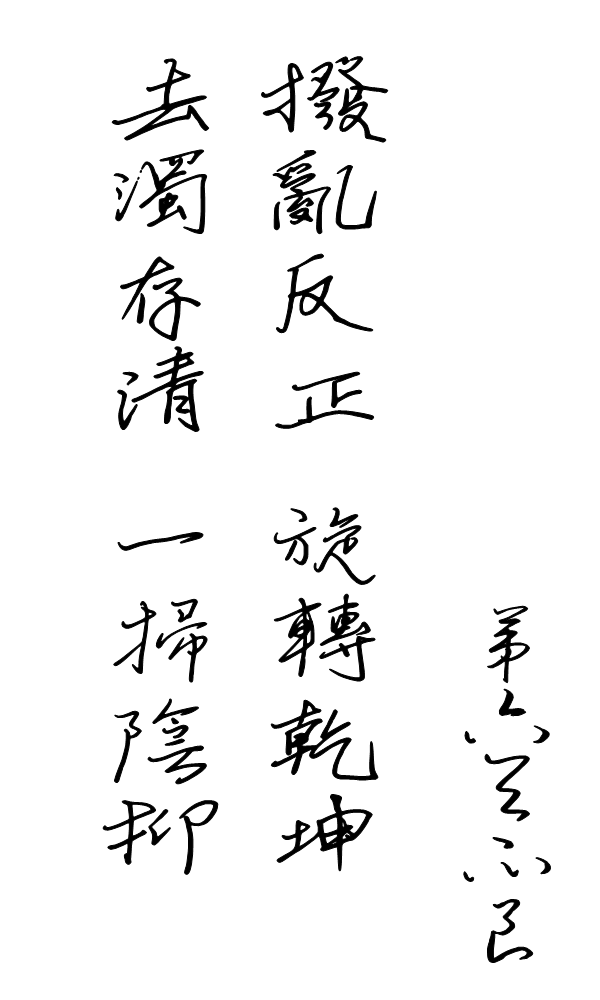 第六
撥亂反正 旋轉乾坤
去濁存清 一掃陰抑